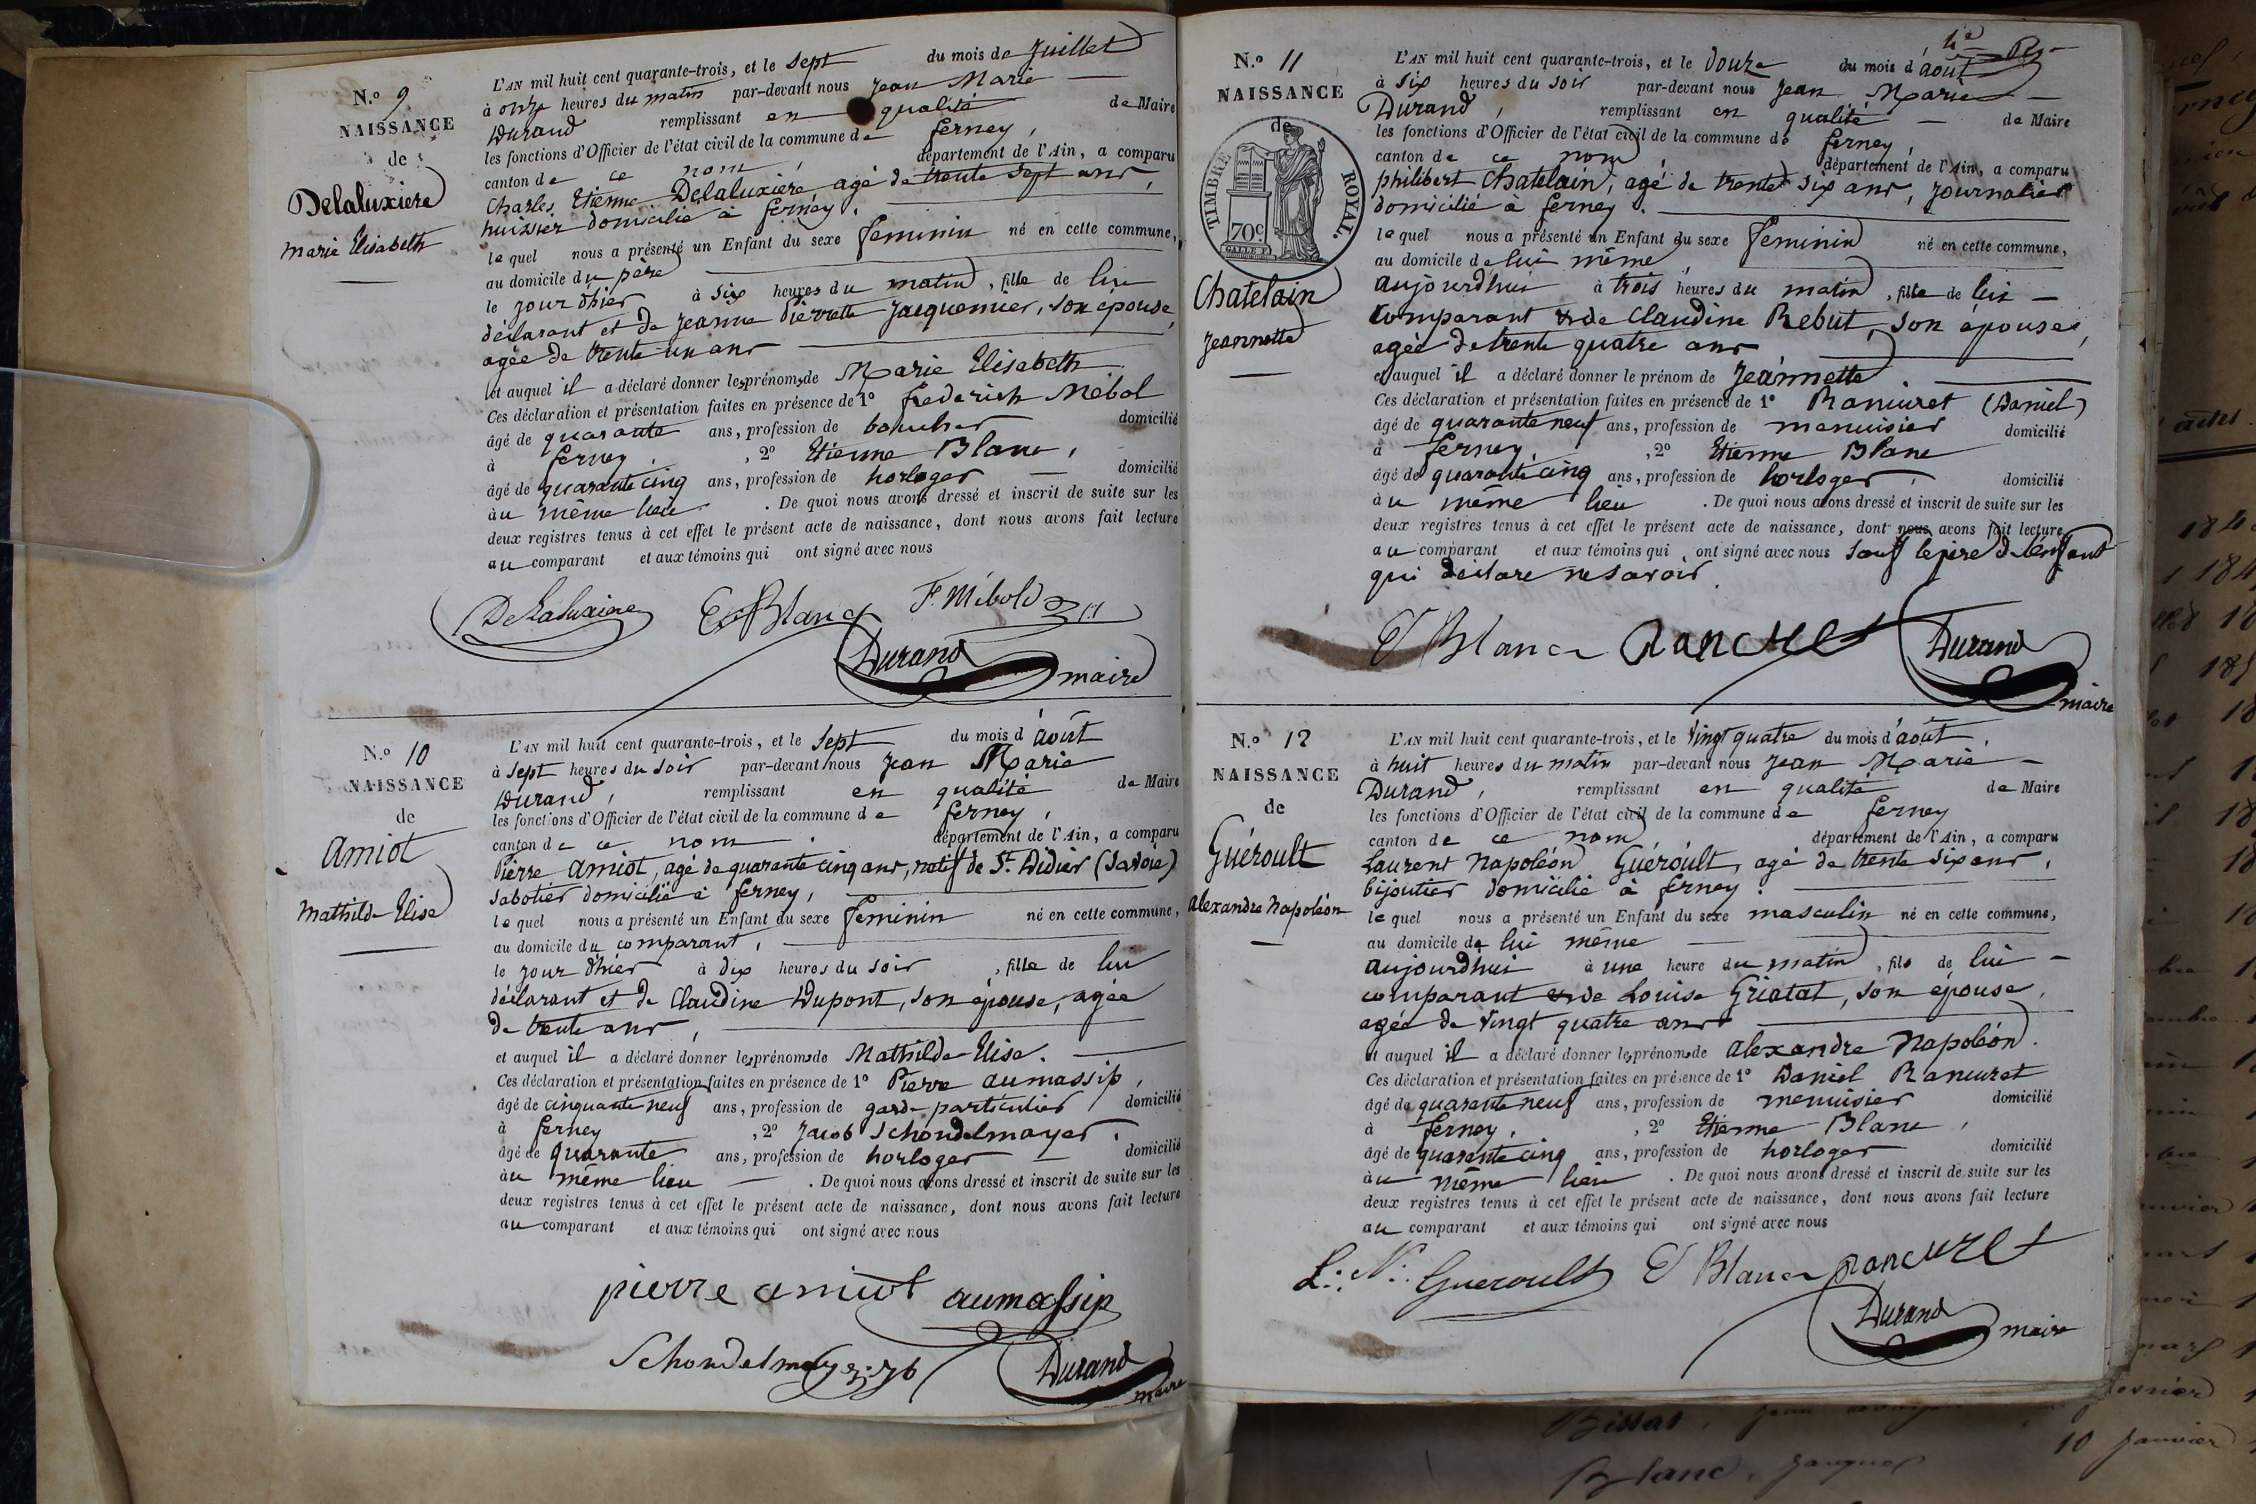 N.o 9
NAISSANCE
de
Delaluxiere
Marie Elisabeth
L'AN mil huit cent quarante-trois, et le sept du mois de Juillet
à onze heures du matin par-devant nous Jean Marie
Durand remplissant en qualité de Maire
les fonctions d'Officier de l'état civil de la commune de ferney,
canton de ce nom, département de l'Ain, a comparu
Charles Etienne Delaluxiere agé de trente sept ans,
huissier domicilié à ferney.
lequel nous a présenté un Enfant du sexe feminin né en cette commune,
au domicile du père
le jour d'hier à six heures du matin, fille de lui
déclarant et de Jeanne Pierrette Jacquemier, son épouse,
agée de trente un ans
et auquel il a déclaré donner les prénoms de Marie Elisabeth
Ces déclaration et présentation faites en présence de 1o frederich Mébol
âgé de quarante ans, profession de boucher domicilié
à ferney, 2o Etienne Blanc,
âgé de quarante cinq ans, profession de horloger domicilié
au même lieu. De quoi nous avons dressé et inscrit de suite sur les
deux registres tenus à cet effet le présent acte de naissance, dont nous avons fait lecture
au comparant et aux témoins qui ont signé avec nous
Delaluxiere Et Blanc F. Mibold
Durand maire
N.o 10
NAISSANCE
de
Amiot
Mathilde Elise
L'AN mil huit cent quarante-trois, et le sept du mois d'août
à sept heures du soir par-devant nous Jean Marie
Durand, remplissant en qualité de Maire
les fonctions d'Officier de l'état civil de la commune de ferney,
canton de ce nom. département de l'Ain, a comparu
Pierre Amiot, agé de quarante cinq ans, natif de St. Didier (Savoie)
sabotier domicilié à ferney,
lequel nous a présenté un Enfant du sexe feminin né en cette commune,
au domicile du comparant,
le jour d'hier à dix heures du soir, fille de lui
déclarant et de Claudine Dupont, son épouse, agée
de trente ans,
et auquel il a déclaré donner les prénoms de Mathilde Elise.
Ces déclaration et présentation faites en présence de 1o Pierre aumassip,
âgé de cinquante neuf ans, profession de garde particulier domicilié
à ferney, 2o Jacob Schondelmayer.
âgé de quarante ans, profession de horloger domicilié
au même lieu. De quoi nous avons dressé et inscrit de suite sur les
deux registres tenus à cet effet le présent acte de naissance, dont nous avons fait lecture
au comparant et aux témoins qui ont signé avec nous
pierre amiot aumassip
Schondelmayer Durand maire
N.o 11
NAISSANCE
de
TIMBRE ROYAL.
70c
Chatelain
Jeannette
L'AN mil huit cent quarante-trois, et le douze du mois d'août
à six heures du soir par-devant nous Jean Marie
Durand, remplissant en qualité de Maire
les fonctions d'Officier de l'état civil de la commune de ferney,
canton de ce nom département de l'Ain, a comparu
philibert Chatelain, agé de trente six ans, journalier
domicilié à ferney.
lequel nous a présenté un Enfant du sexe feminin né en cette commune,
au domicile de lui même,
aujourdhui à trois heures du matin, fille de lui
comparant et de Claudine Rebut, son épouse,
agée de trente quatre ans
et auquel il a déclaré donner le prénom de Jeannette
Ces déclaration et présentation faites en présence de 1o Rancuret (Daniel)
âgé de quarante neuf ans, profession de menuisier domicilié
à ferney, 2o Etienne Blanc
âgé de quarante cinq ans, profession de horloger, domicilié
au même lieu. De quoi nous avons dressé et inscrit de suite sur les
deux registres tenus à cet effet le présent acte de naissance, dont nous avons fait lecture
au comparant et aux témoins qui ont signé avec nous sauf le père de l'enfant
qui déclare ne savoir.
Et Blanc Rancuret Durand
maire
N.o 12
NAISSANCE
de
Guéroult
alexandre Napoléon
L'AN mil huit cent quarante-trois, et le vingt quatre du mois d'août,
à huit heures du matin par-devant nous Jean Marie
Durand, remplissant en qualité de Maire
les fonctions d'Officier de l'état civil de la commune de ferney
canton de ce nom département de l'Ain, a comparu
Laurent Napoléon Guéroult, agé de trente six ans,
bijoutier domicilié à ferney.
lequel nous a présenté un Enfant du sexe masculin né en cette commune,
au domicile de lui même
aujourdhui à une heure du matin, fils de lui
comparant et de Louise Griotat, son épouse,
agée de vingt quatre ans
et auquel il a déclaré donner les prénoms de alexandre Napoléon.
Ces déclaration et présentation faites en présence de 1o Daniel Rancuret
âgé de quarante neuf ans, profession de menuisier domicilié
à ferney, 2o Etienne Blanc,
âgé de quarante cinq ans, profession de horloger domicilié
au même lieu. De quoi nous avons dressé et inscrit de suite sur les
deux registres tenus à cet effet le présent acte de naissance, dont nous avons fait lecture
au comparant et aux témoins qui ont signé avec nous
L. N. Gueroult Et Blanc Rancuret
Durand maire
10 janvier
Blanc